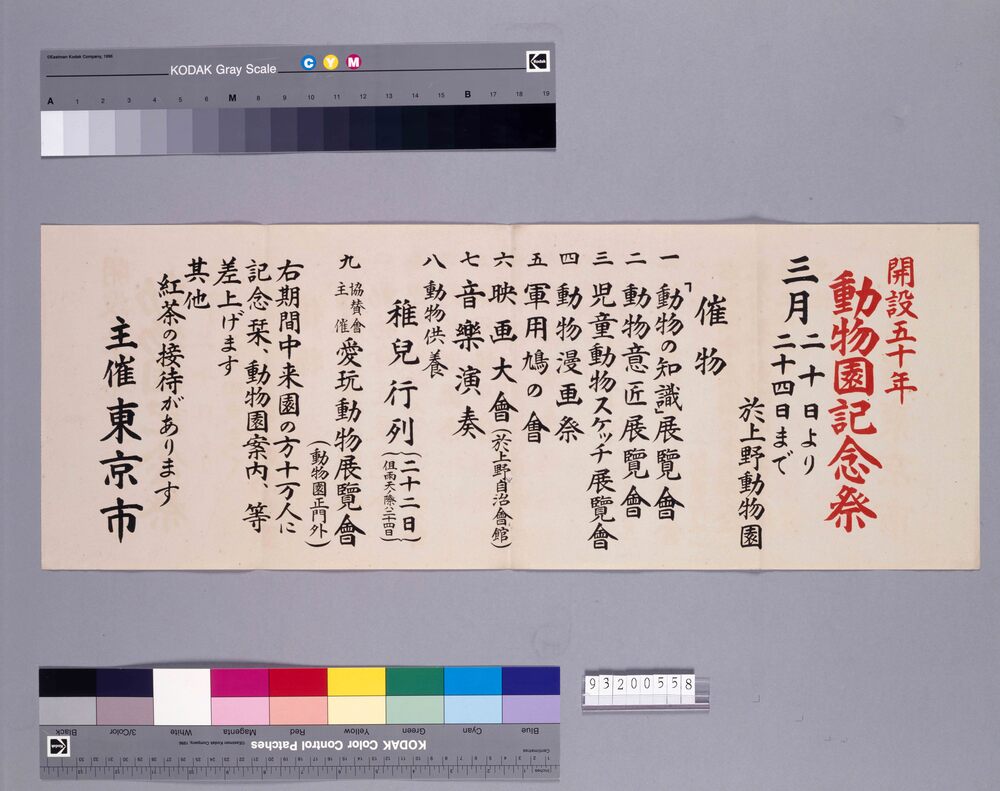 ©Eastman Kodak Company, 1996
KODAK Gray Scale
C Y M
Kodak
A 1 2 3 4 5 6 M 8 9 10 11 12 13 14 15 B 17 18 19
開設五十年
動物園記念祭
三月二十日より
二十四日まで
於上野動物園
催物
一 「動物の知識」展覽會
二 動物意匠展覽會
三 児童動物スケッチ展覽會
四 動物漫画祭
五 軍用鳩の會
六 映画大會(於上野自治會館)
七 音樂演奏
八 動物供養
稚兒行列(二十二日)
(但雨天ノ際ハ二十四日)
九 協賛會主催 愛玩動物展覽會
(動物園正門外)
右期間中来園の方十万人に
記念栞、動物園案内、等
差上げます
其他
紅茶の接待があります
主催東京市
Blue Cyan Green Yellow Red Magenta White 3/Color Black
KODAK Color Control Patches
©Eastman Kodak Company, 1996
Kodak
Centimetres
Inches
93200558